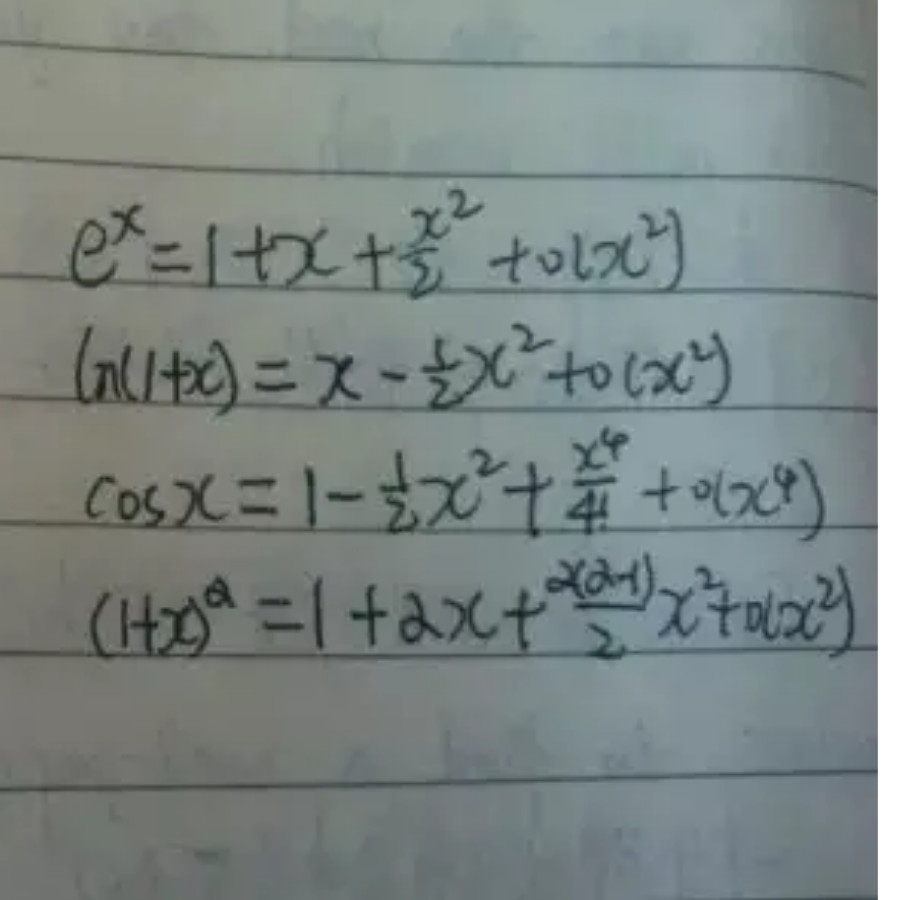 e^x = 1 + x + x^2/2 + o(x^2)
ln(1+x) = x - 1/2 x^2 + o(x^2)
cos x = 1 - 1/2 x^2 + x^4/4! + o(x^4)
(1+x)^α = 1 + αx + α(α-1)/2 x^2 + o(x^2)